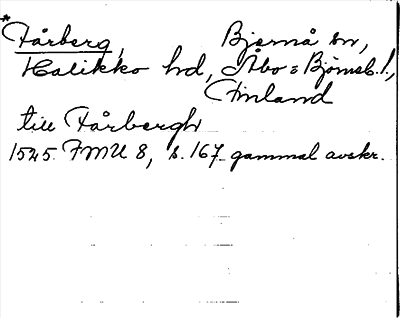 * Fårberg, Bjernå sn,
Halikko hd, Åbo = Björneb. l.,
Finland
till Fårbergh
1545. FMU 8, s. 167 gammal avskr.